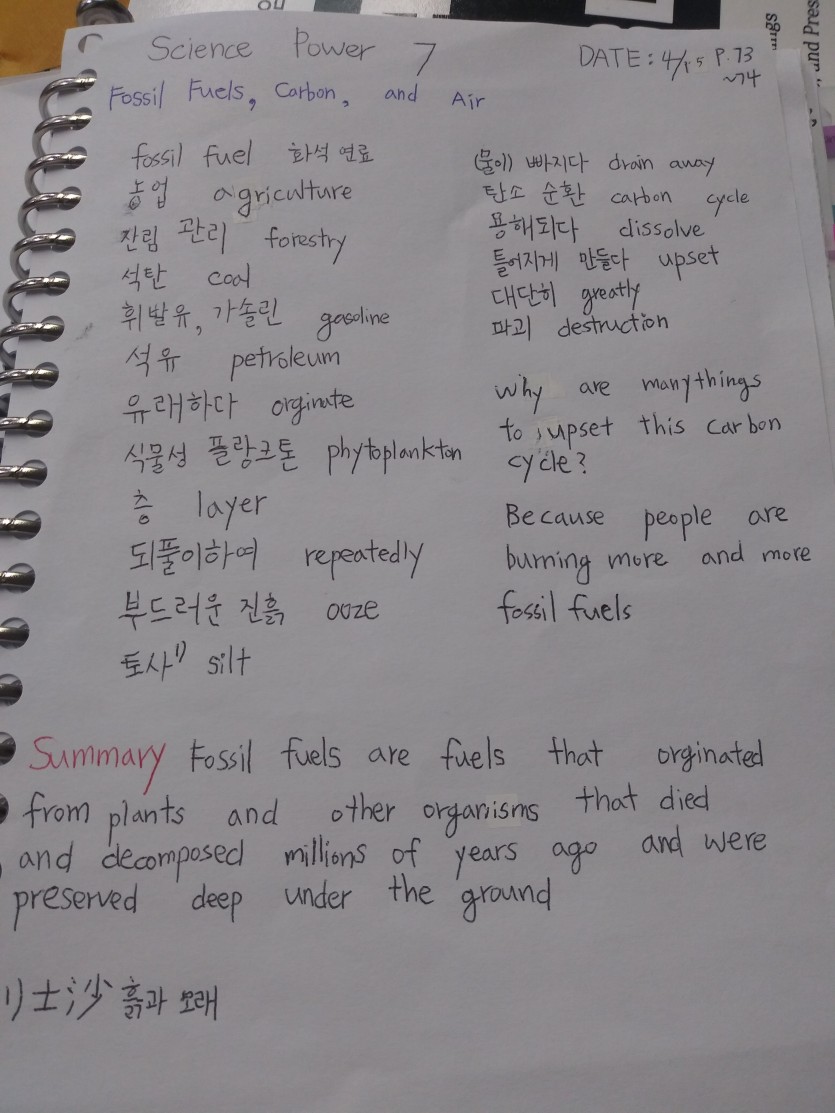 Science Power 7
DATE: 4/15 P.73
~74
Fossil Fuels, Carbon, and Air
fossil fuel 화석 연료
농업 agriculture
잔림 관리 forestry
석탄 coal
휘발유, 가솔린 gasoline
석유 petroleum
유래하다 orginate
식물성 플랑크톤 phytoplankton
층 layer
되풀이하여 repeatedly
부드러운 진흙 ooze
토사1) silt
(물이) 빠지다 drain away
탄소 순환 carbon cycle
용해되다 dissolve
틀어지게 만들다 upset
대단히 greatly
파괴 destruction
why are manythings
to upset this carbon
cycle?
Because people are
burning more and more
fossil fuels
Summary Fossil fuels are fuels that orginated
from plants and other organisms that died
and decomposed millions of years ago and were
preserved deep under the ground
1) 土沙 흙과 모래